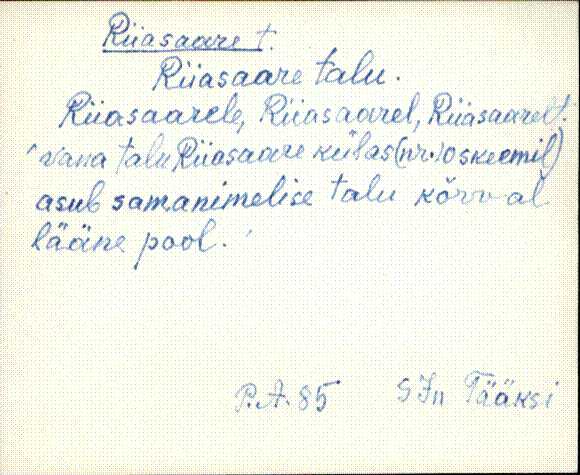 Riiasaare t.
Riiasaare talu.
Riiasaarele, Riiasaarel, Riiasaarelt.
Vana talu Riiasaare külas (nr. 10 skeemil)
asub samanimelise talu kõrval
lääne pool.
P.A. 85 SJn Tääksi